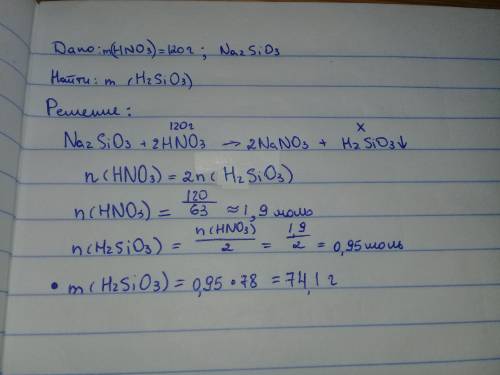 Дано: m(HNO3)=120г; Na2SiO3
Найти: m (H2SiO3)
Решение:
120г x
Na2SiO3 + 2HNO3 → 2NaNO3 + H2SiO3↓
n(HNO3) = 2n(H2SiO3)
n(HNO3) = 120/63 ≈ 1,9 моль
n(H2SiO3) = n(HNO3)/2 = 1,9/2 = 0,95 моль
• m(H2SiO3) = 0,95 • 78 = 74,1 г